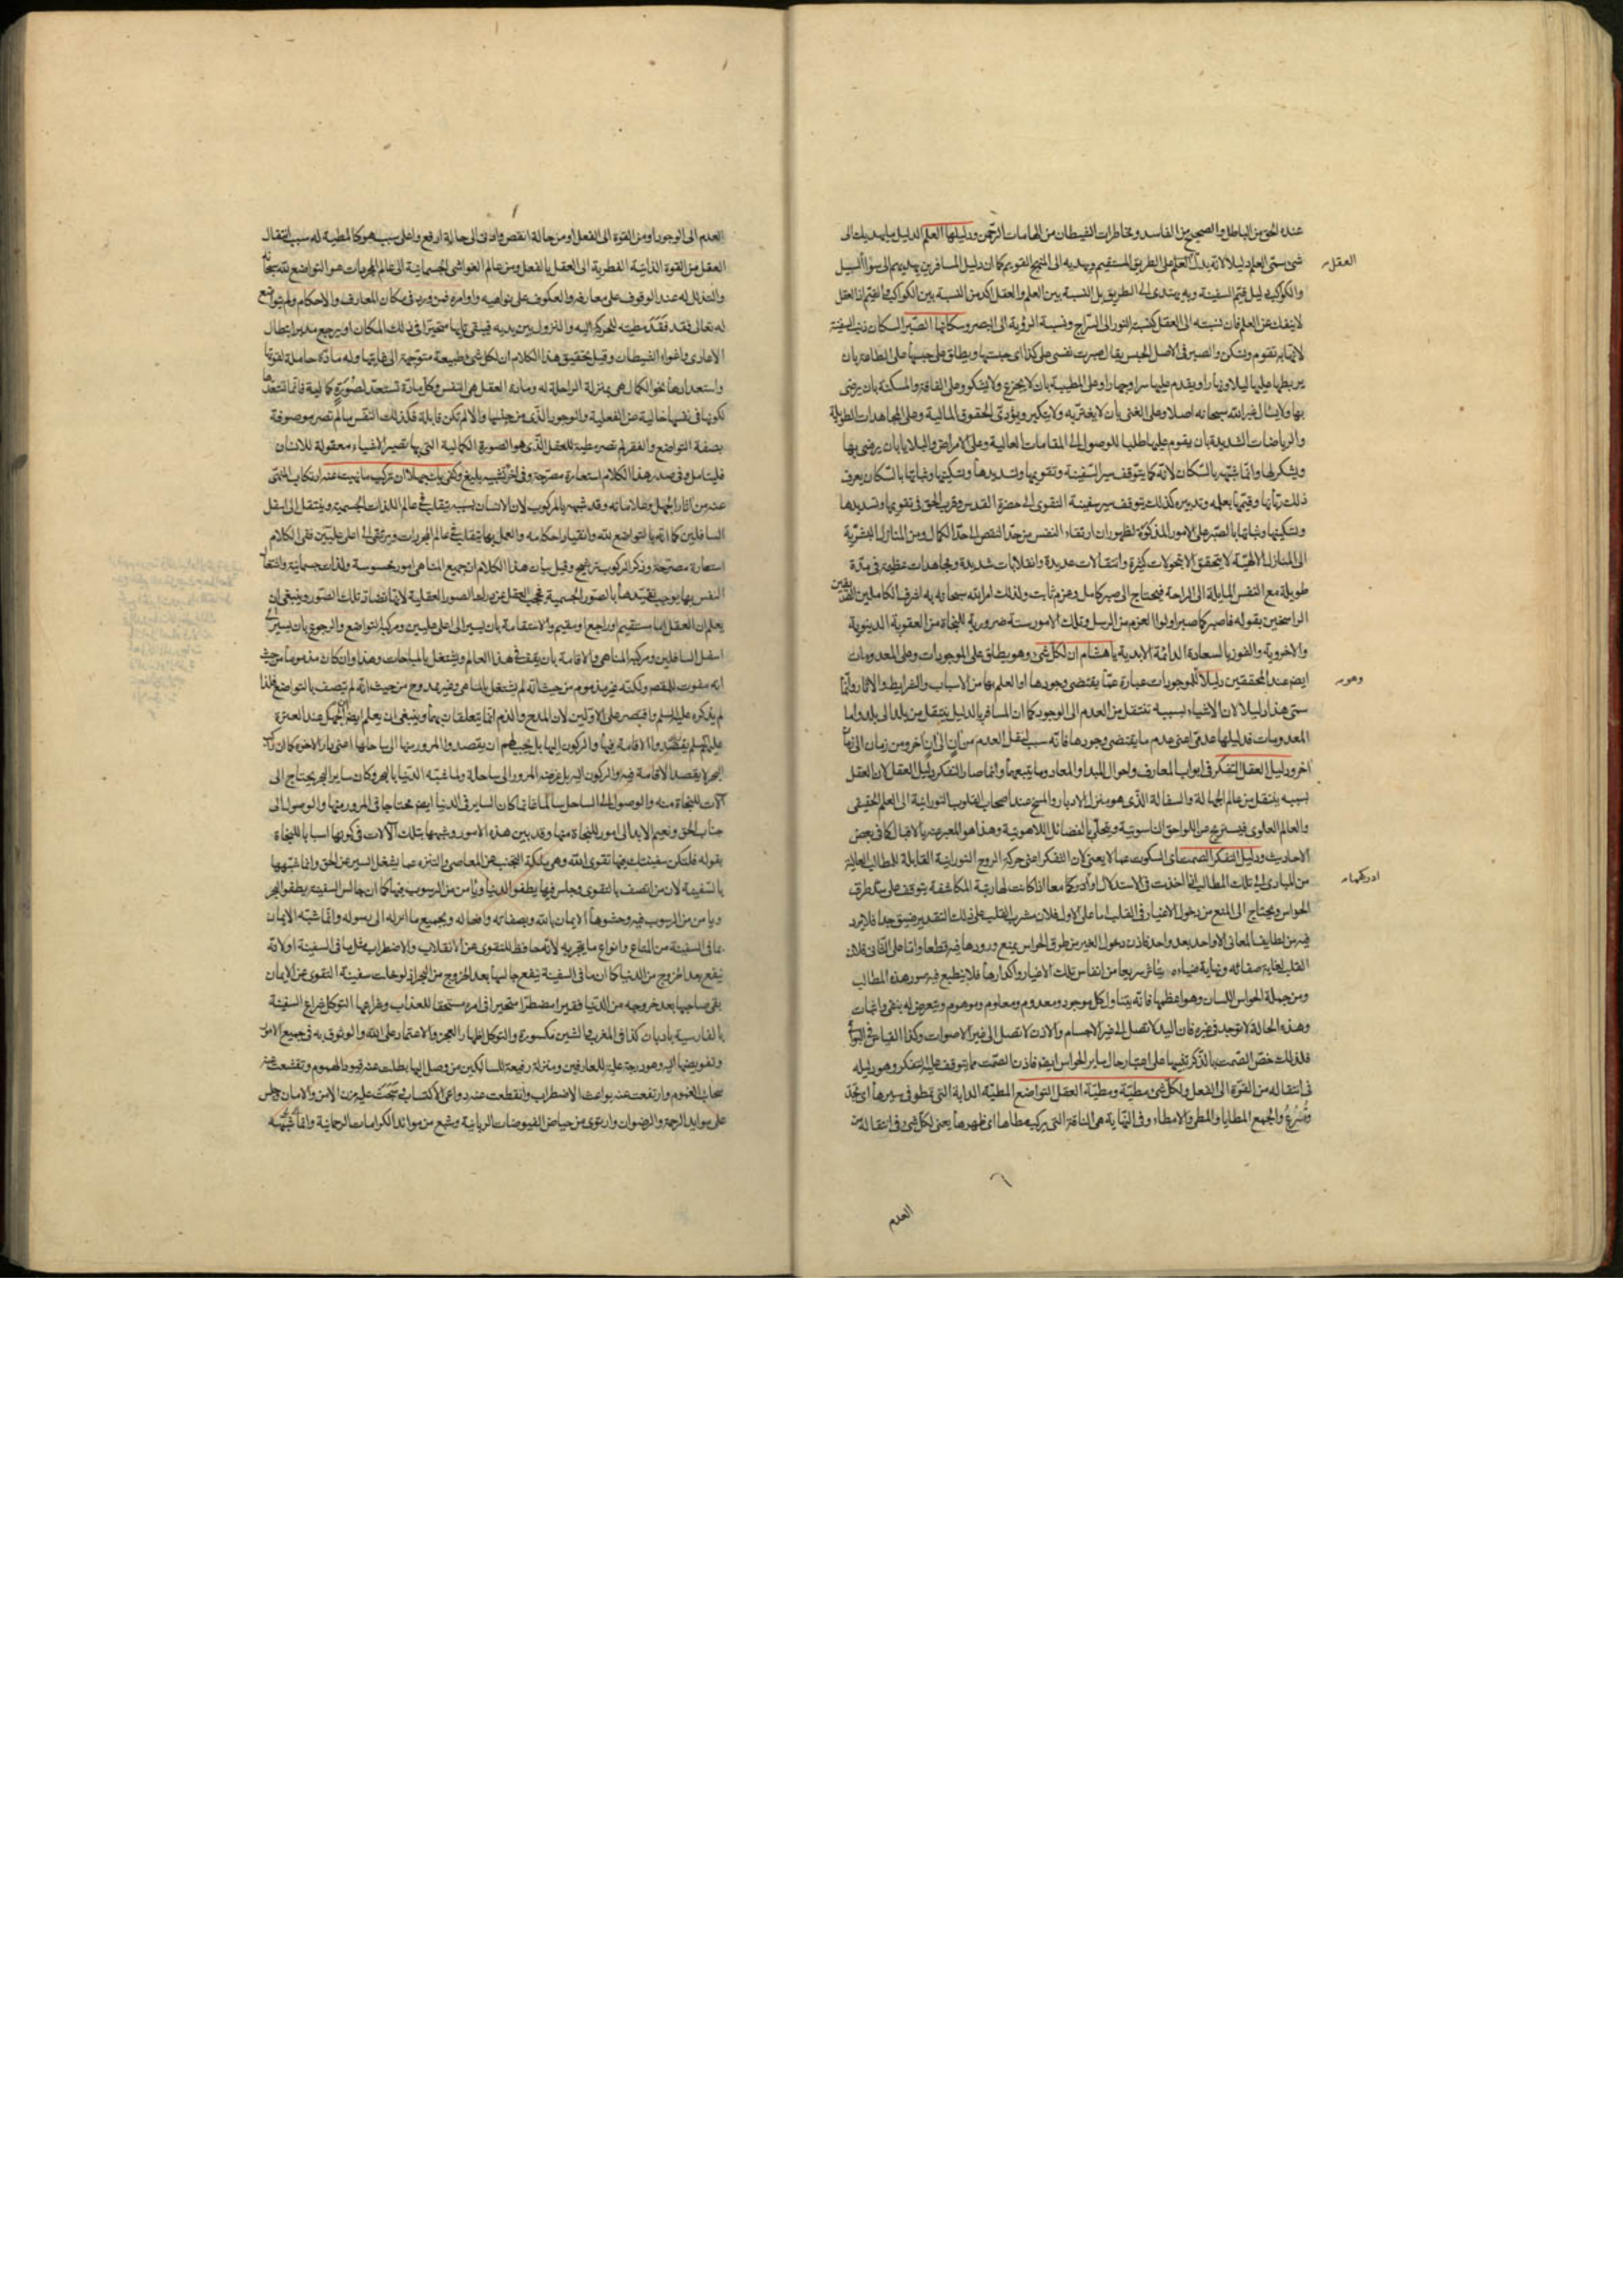 عنده الحق من الباطل والصحيح من الفاسد ومخاطرات الشيطان من الهامات الرحمن ودليلها العلم الدليل ما يهديك الى
شئ سمى العلم دليلا لانه يدل العقل على الطريق المستقيم ويهديه الى المنهج القويم كما ان دليل المسافرين يهديهم الى سواء السبيل
والكواكب دليل قيم السفينة وبه يهتدى الى الطريق بل النسبة بين العلم والعقل اكد من النسبة بين الكواكب والقيم اذ العقل
لا ينفك عن العلم فان نسبته الى العقل كنسبة النور الى السراج ونسبة الرؤية الى البصر وسكانها الصبر السكان ذنب السفينة
لانها به تقوم وتسكن والصبر فى الاصل الحبس يقال صبرت نفسى على كذا اى حبستها ويطلق على حبسها على الطاعة بان
يربطها عليها ليلا ونهارا ويقدم عليها سرا وجهارا وعلى المصيبة بان لا يجزع ولا يشكو وعلى الفاقة والمسكنة بان يرضى
بها ولا يسأل غير الله سبحانه اصلا وعلى الغنى بان لا يغتر به ولا يتكبر ويؤدى الحقوق المالية وعلى المجاهدات الطويلة
والرياضات الشديدة بان يقوم عليها طلبا للوصول الى المقامات العالية وعلى الامراض والبلايا بان يرضى بها
ويشكر لها وانما شبهه بالسكان لانه كما يتوقف سير السفينة وتقويمها وتسديدها وتسكينها وثباتها بالسكان يعرف
ذلك ربانها وقيمها بعلمه وتدبيره كذلك يتوقف سير سفينة التقوى الى حضرة القدس وقرب الحق فى تقويمها وتسديدها
وتسكينها وثباتها بالصبر على الامور المذكورة لظهور ان ارتقاء النفس من حد النقص الى حد الكمال ومن المنازل البشرية
الى المنازل الالهية لا يتحقق الا بتحولات كثيرة وانتقالات عديدة وانقلابات شديدة ومجاهدات عظيمة فى مدة
طويلة مع النفس المايلة الى الراحة فيحتاج الى صبر كامل وعزم ثابت ولذلك امر الله سبحانه به اشرف الكاملين
الراسخين بقوله فاصبر كما صبر اولوا العزم من الرسل وتلك الامور ستة ضرورية للنجاة من العقوبة الدنيوية
والاخروية والفوز بالسعادة الدائمة الابدية يا هشام ان لكل شئ وهو يطلق على الموجودات وعلى المعدومات
ايضا عند المحققين دليلا للموجودات عبارة عما يقتضى وجودها او العلم بها من الاسباب والشرايط والاثار وانما
سمى هذا دليلا لان الاشياء بسببه تنتقل من العدم الى الوجود كما ان المسافر بالدليل ينتقل من بلد الى بلد واما
المعدومات فدليلها عدمى اعنى عدم ما يقتضى وجودها فانه سبب لنقل العدم من ان الى ان اخر ومن زمان الى زمان
اخر ودليل العقل التفكر فى ابواب المعارف واحوال المبدا والمعاد وما يتبعهما وانما صار التفكر دليل العقل لان العقل
بسببه ينتقل من عالم الجهالة والسفالة الذى هو منزل الادبار والمسخ عند اصحاب القلوب النورانية الى العلم الحقيقى
والعالم العلوى فيستريح من اللواحق الناسوتية ويتحلى بالفضائل اللاهوتية وهذا هو المعبر عنه بالاقبال كما فى بعض
الاحاديث ودليل التفكر الصمت اى السكوت عما لا يعنى لان التفكر اعنى حركة الروح النورانية القابلة للمطالب العالية
من المبادى الى تلك المطالب اذا اخذت فى الاستدلال او ادركها معا اذا كانت لها رتبة المكاشفة يتوقف على سد طرق
الحواس ويحتاج الى المنع من دخول الاغيار فى القلب اما على الاول فلان مشرب القلب على ذلك التقدير ضيق جدا فلا يرد
فيه من لطايف المعانى الا واحد بعد واحد فاذن دخول الغير من طرق الحواس يمنع ورودها فيه قطعا واما على الثانى فلان
القلب لغاية صفائه ونهاية ضيائه يتأثر سريعا من انفاس تلك الاغيار واكدارها فلا ينطبع فيه صور هذه المطالب
ومن جملة الحواس اللسان وهو اعظمها فانه يتناول كل موجود ومعدوم ومعلوم وموهوم ويتعرض له بنفى واثبات
وهذه الحالة لا توجد فى غيره فان اليد لا تصل الى غير الاجسام والاذن لا تصل الى غير الاصوات وكذا القياس فى البواقى
فلذلك خص الصمت بالذكر تنبيها على اعتبار حال ساير الحواس ايضا فاذن الصمت مما يتوقف عليه التفكر وهو دليله
فى انتقاله من القوة الى الفعل ولكل شئ مطية ومطية العقل التواضع المطية الدابة التى تمطو فى سيرها اى تجد
وتسرع والجمع المطايا والمطى والامطاء وفى النهاية هى الناقة التى يركب مطاها اى ظهرها يعنى لكل شئ فى انتقاله من
العقل
وهو
ادركهما
العدم
العدم الى الوجود او من القوة الى الفعل او من حالة انقص وادنى الى حالة ارفع واعلى سبب هو كالمطية له سبب انتقال
العقل من القوة الذاتية الفطرية الى العقل بالفعل ومن عالم الغواشى الجسمانية الى عالم المجردات هو التواضع لله سبحانه
والتذلل له عند الوقوف على معارفه والعكوف على نواهيه واوامره فمن ورد فى مكان المعارف والاحكام ولم يتواضع
له تعالى فقد فقد مطيته للحركة اليه والنزول بين يديه فيبقى تايها متحيرا فى ذلك المكان او يرجع مدبرا بطال
الاعادى واغواء الشيطان وقيل تحقيق هذا الكلام ان لكل شئ طبيعة متوجهة الى غايتها وله مادة حاملة لقوتها
واستعدادها نحو الكمال هى بمنزلة الراحلة له ومادة العقل هى النفس وكل مادة تستعد لصورة كمالية فانما تستعدها
لكونها فى نفسها خالية عن الفعلية والوجود الذى من جنسها والا لم تكن قابلة فكذلك النفس ما لم تصر موصوفة
بصفة التواضع والفقر لم تصر مطية للعقل الذى هو الصورة الكمالية التى بها تصير الاشياء معقولة للانسان
فليتامل وفى صدر هذا الكلام استعارة مصرحة وفى اخره تشبيه بليغ وكفى بك جهلا ان تركب ما نهيت عنه ارتكاب المنهى
عنه من اثار الجهل وعلاماته وقد شبهه بالمركوب لان الانسان بسببه يتقلب فى عالم اللذات الجسمية وينتقل الى اسفل
السافلين كما انه بالتواضع لله وانقياد احكامه والعمل بها يتقلب فى عالم المجردات ويرتقى الى اعلى عليين ففى الكلام
استعارة مصرحة وذكر الركوب ترشيح وقيل بيان هذا الكلام ان جميع المناهى امور محسوسة ولذات جسمانية واشتغال
النفس بها يوجب تقيدها بالصور الجسمية يحجب العقل عن ادراك الصور العقلية لانها تضاد تلك الصور وينبغى ان
يعلم ان العقل اما مستقيم او راجع او مقيم والاستقامة بان يسير الى اعلى عليين ومركبه التواضع والرجوع بان يسير الى
اسفل السافلين ومركبه المناهى والاقامة بان يقف فى هذا العالم ويشتغل بالمباحات وهذا وان كان مذموما من حيث
انه مفوت للمقصد ولكنه غير مذموم من حيث انه لم يشتغل بالمناهى وغير ممدوح من حيث انه لم يتصف بالتواضع فلذا
لم يذكره عليه السلم واقتصر على الاولين لان المدح والذم انما يتعلقان بهما وينبغى ان يعلم ايضا
البحر لا يقصد الاقامة فيه والركون اليه بل غرضه المرور الى ساحله ولما شبه الدنيا بالبحر وكان ساير البحر يحتاج الى
آلات للنجاة منه والوصول الى الساحل سالما غانما كان الساير فى الدنيا ايضا محتاجا فى المرور منها والوصول الى
جناب الحق ونعيم الابد الى امور للنجاة منها وقد بين هذه الامور وشبهها بتلك الآلات فى كونها اسبابا للنجاة
بقوله فلتكن سفينتك فيها تقوى الله وهى ملكة التجنب عن المعاصى والتنزه عما يشغل السير عن الحق وانما شبهها
بالسفينة لان من اتصف بالتقوى وجلس فيها يطفو الدنيا ويأمن من الرسوب فيها كما ان جالس السفينة يطفو البحر
ويامن من الرسوب فيه وحشوها الايمان بالله وبصفاته وافعاله وبجميع ما انزله الى رسوله وانما شبه الايمان
بما فى السفينة من المتاع وانواع ما يتجر به لانه محافظ للتقوى عن الانقلاب والاضطراب مثل ما فى السفينة او لانه
ينفع بعد الخروج من الدنيا كما ان ما فى السفينة ينفع جالسها بعد الخروج من البحر اذ لو خلت سفينة التقوى عن الايمان
بقى صاحبها بعد خروجه من الدنيا فقيرا مضطرا متحيرا فى امره مستحقا للعذاب وشراعها التوكل شراع السفينة
بالفارسية بادبان كذا فى المغرب والشين مكسورة والتوكل اظهار العجز والاعتماد على الله والوثوق به فى جميع الامور
وتفويضها اليه وهو درجة علية للعارفين ومنزلة رفيعة للسالكين من وصل اليها بطلت عنه قيود الهموم وتقشعت عنه
سحاب الغموم وارتفعت عنه بواعث الاضطراب وانقطعت عنه دواعى الاكتساب وسحت عليه مزن الامن والامان وجلس
على موايد الرحمة والرضوان وارتوى من حياض الفيوضات الربانية وشبع من موائد الكرامات الرحمانية وانما شبهه